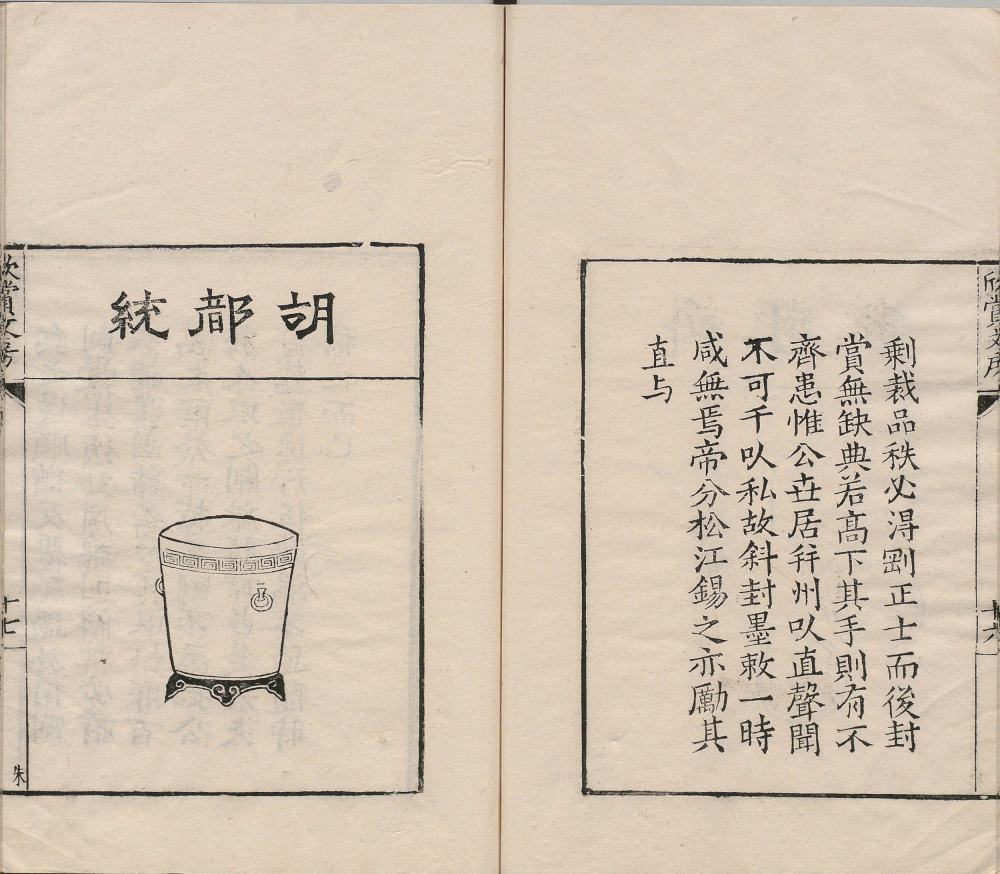 剰裁品秩必淂剛正士而後封
賞無缺典若髙下其手則有不
齊患惟公丗居幷州㕥直聲聞
不可千㕥私故斜封墨敕一時
咸無焉帝分松江錫之亦勵其
直与
欣賞文房
十六
胡都統
欣賞文房
十七
朱